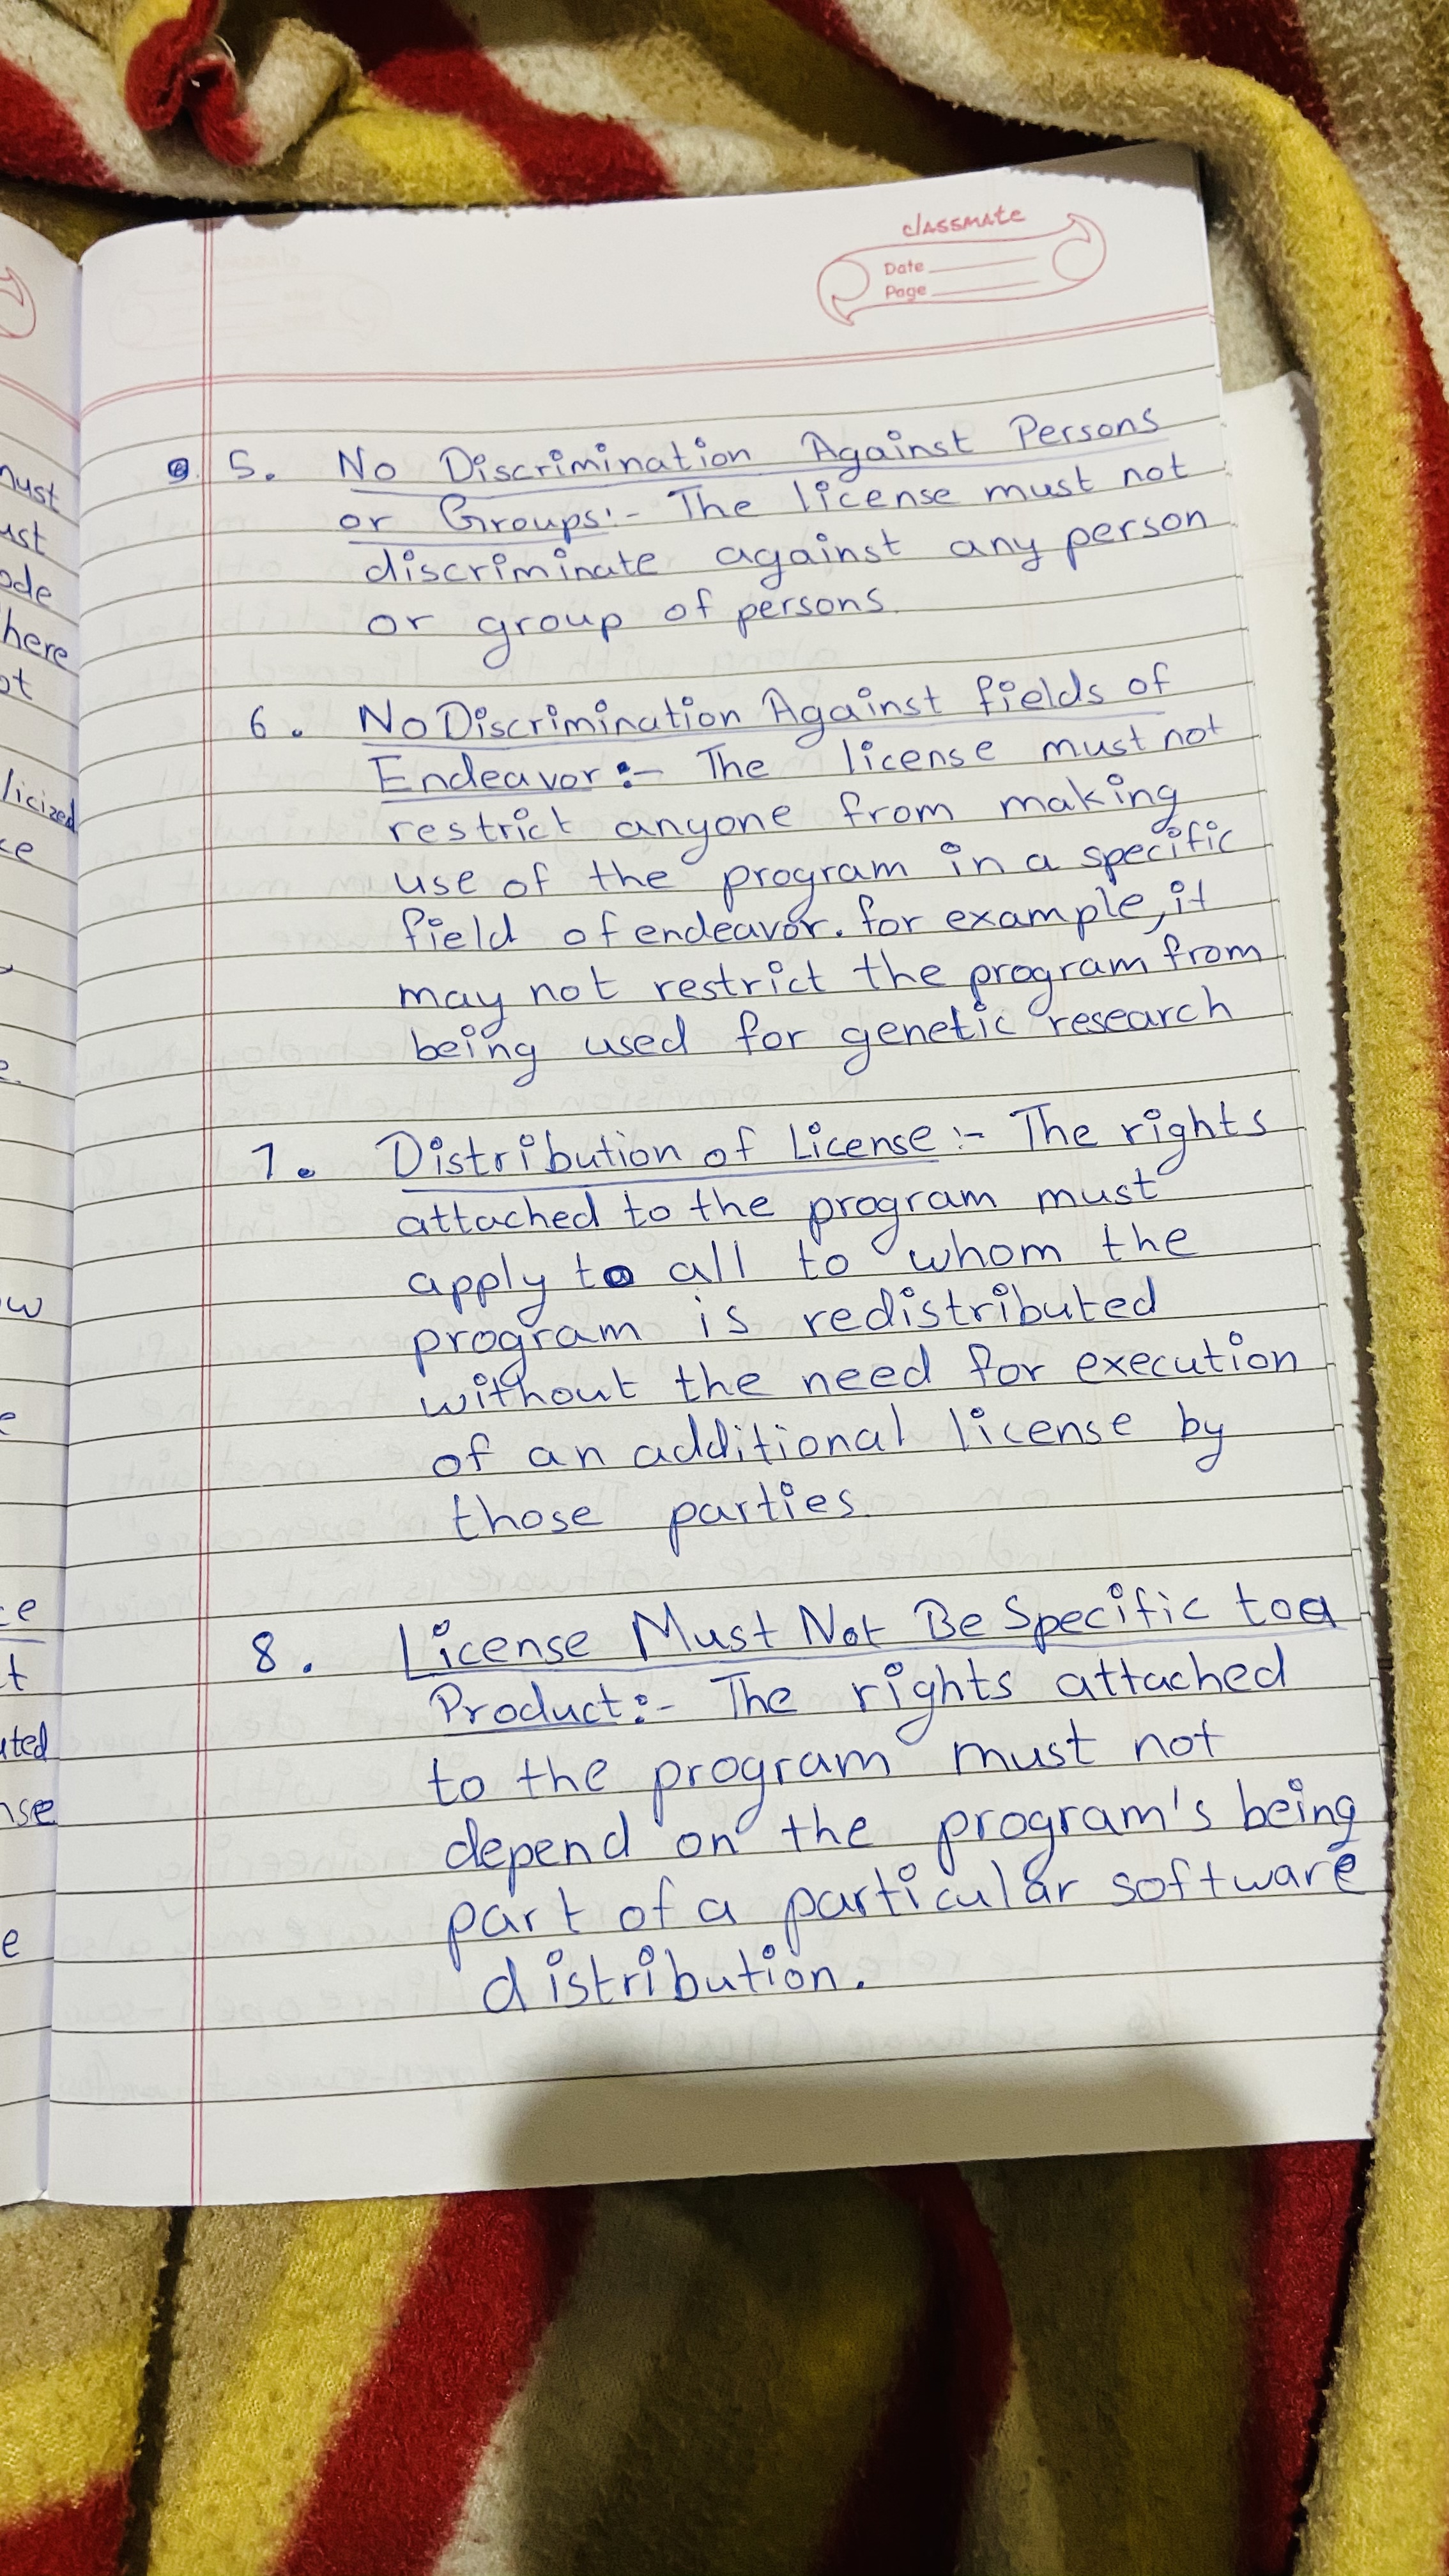 classmate
Date
Page
5. No Discrimination Against Persons
or Groups:- The license must not
discriminate against any person
or group of persons.
6. No Discrimination Against fields of
Endeavor:- The license must not
restrict anyone from making
use of the program in a specific
field of endeavor. for example, it
may not restrict the program from
being used for genetic research
7. Distribution of License:- The rights
attached to the program must
apply to all to whom the
program is redistributed
without the need for execution
of an additional license by
those parties.
8. License Must Not Be Specific to a
Product:- The rights attached
to the program must not
depend on the program's being
part of a particular software
distribution.